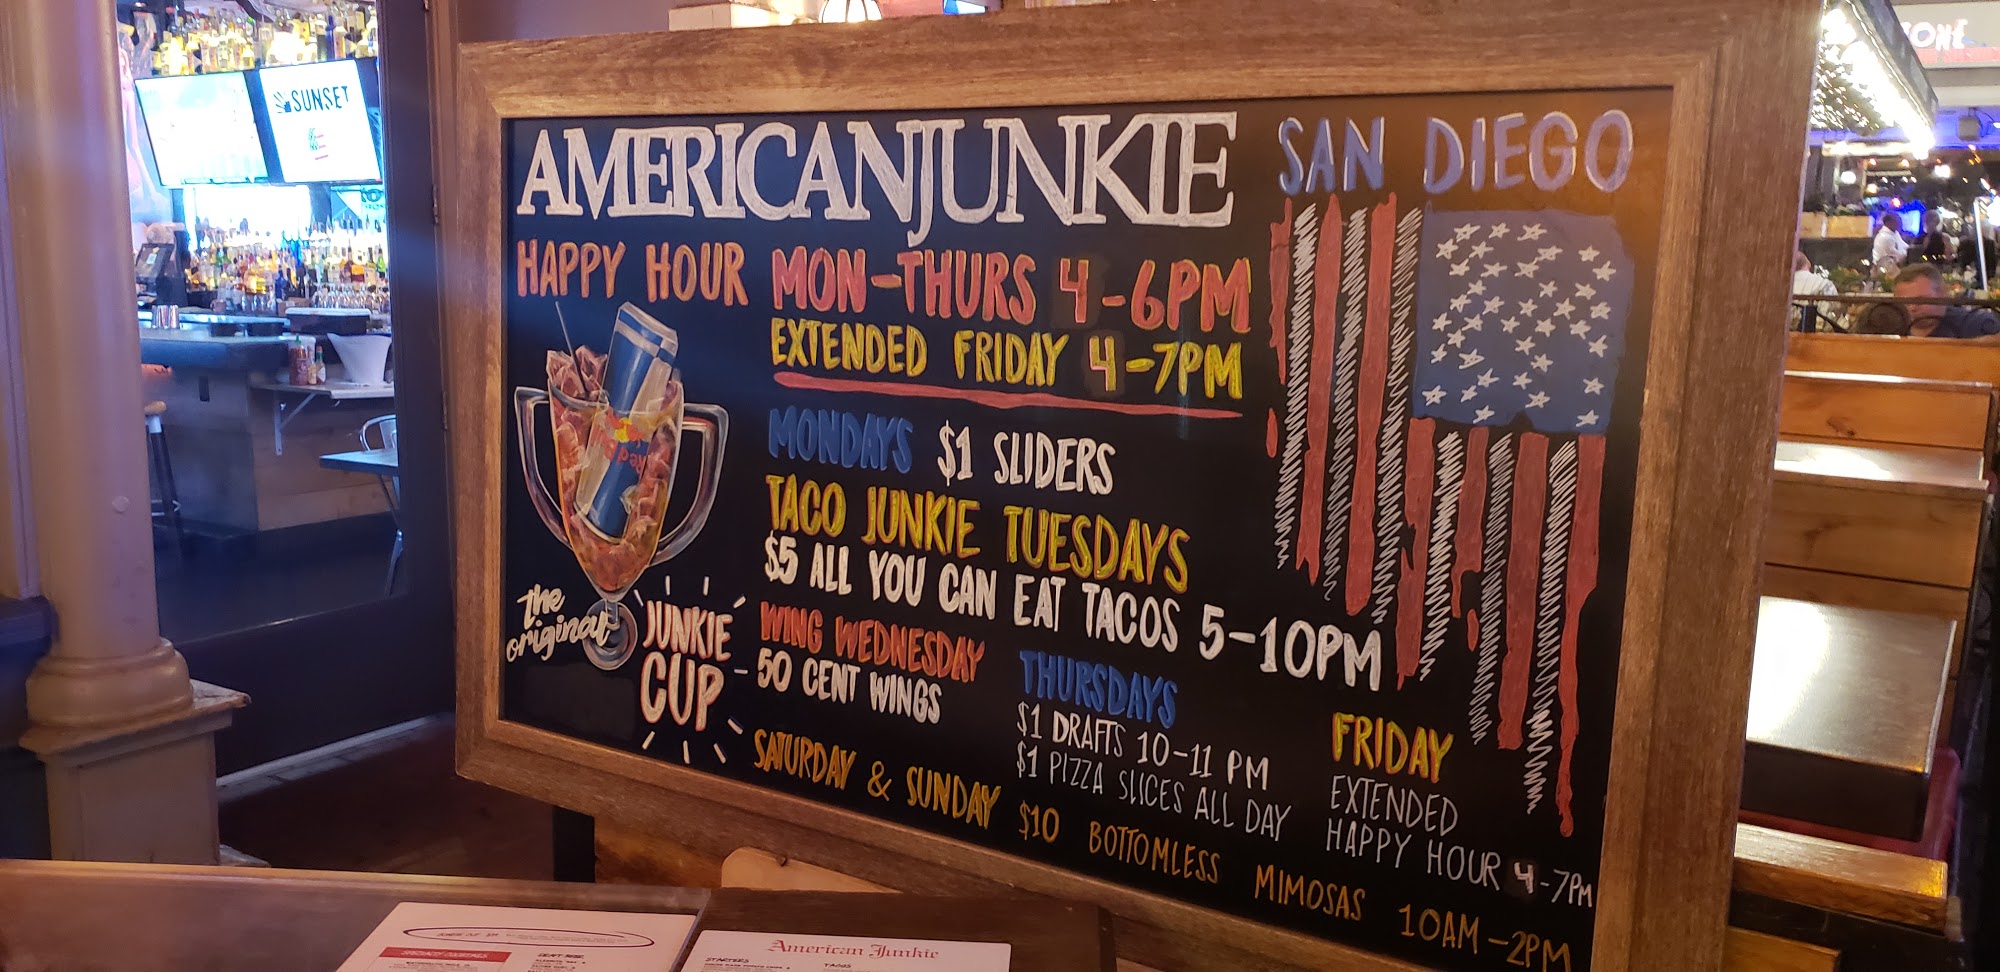 SUNSET
AMERICANJUNKIE SAN DIEGO
HAPPY HOUR MON-THURS 4-6PM
EXTENDED FRIDAY 4-7PM
MONDAYS $1 SLIDERS
TACO JUNKIE TUESDAYS
$5 ALL YOU CAN EAT TACOS 5-10PM
Red Bull
the original
JUNKIE CUP
WING WEDNESDAY
- 50 CENT WINGS
THURSDAYS
$1 DRAFTS 10-11 PM
$1 PIZZA SLICES ALL DAY
FRIDAY
EXTENDED
HAPPY HOUR 4-7PM
SATURDAY & SUNDAY $10 BOTTOMLESS MIMOSAS 10AM-2PM
SPECIALTY COCKTAILS
American Junkie
STARTERS
TACOS